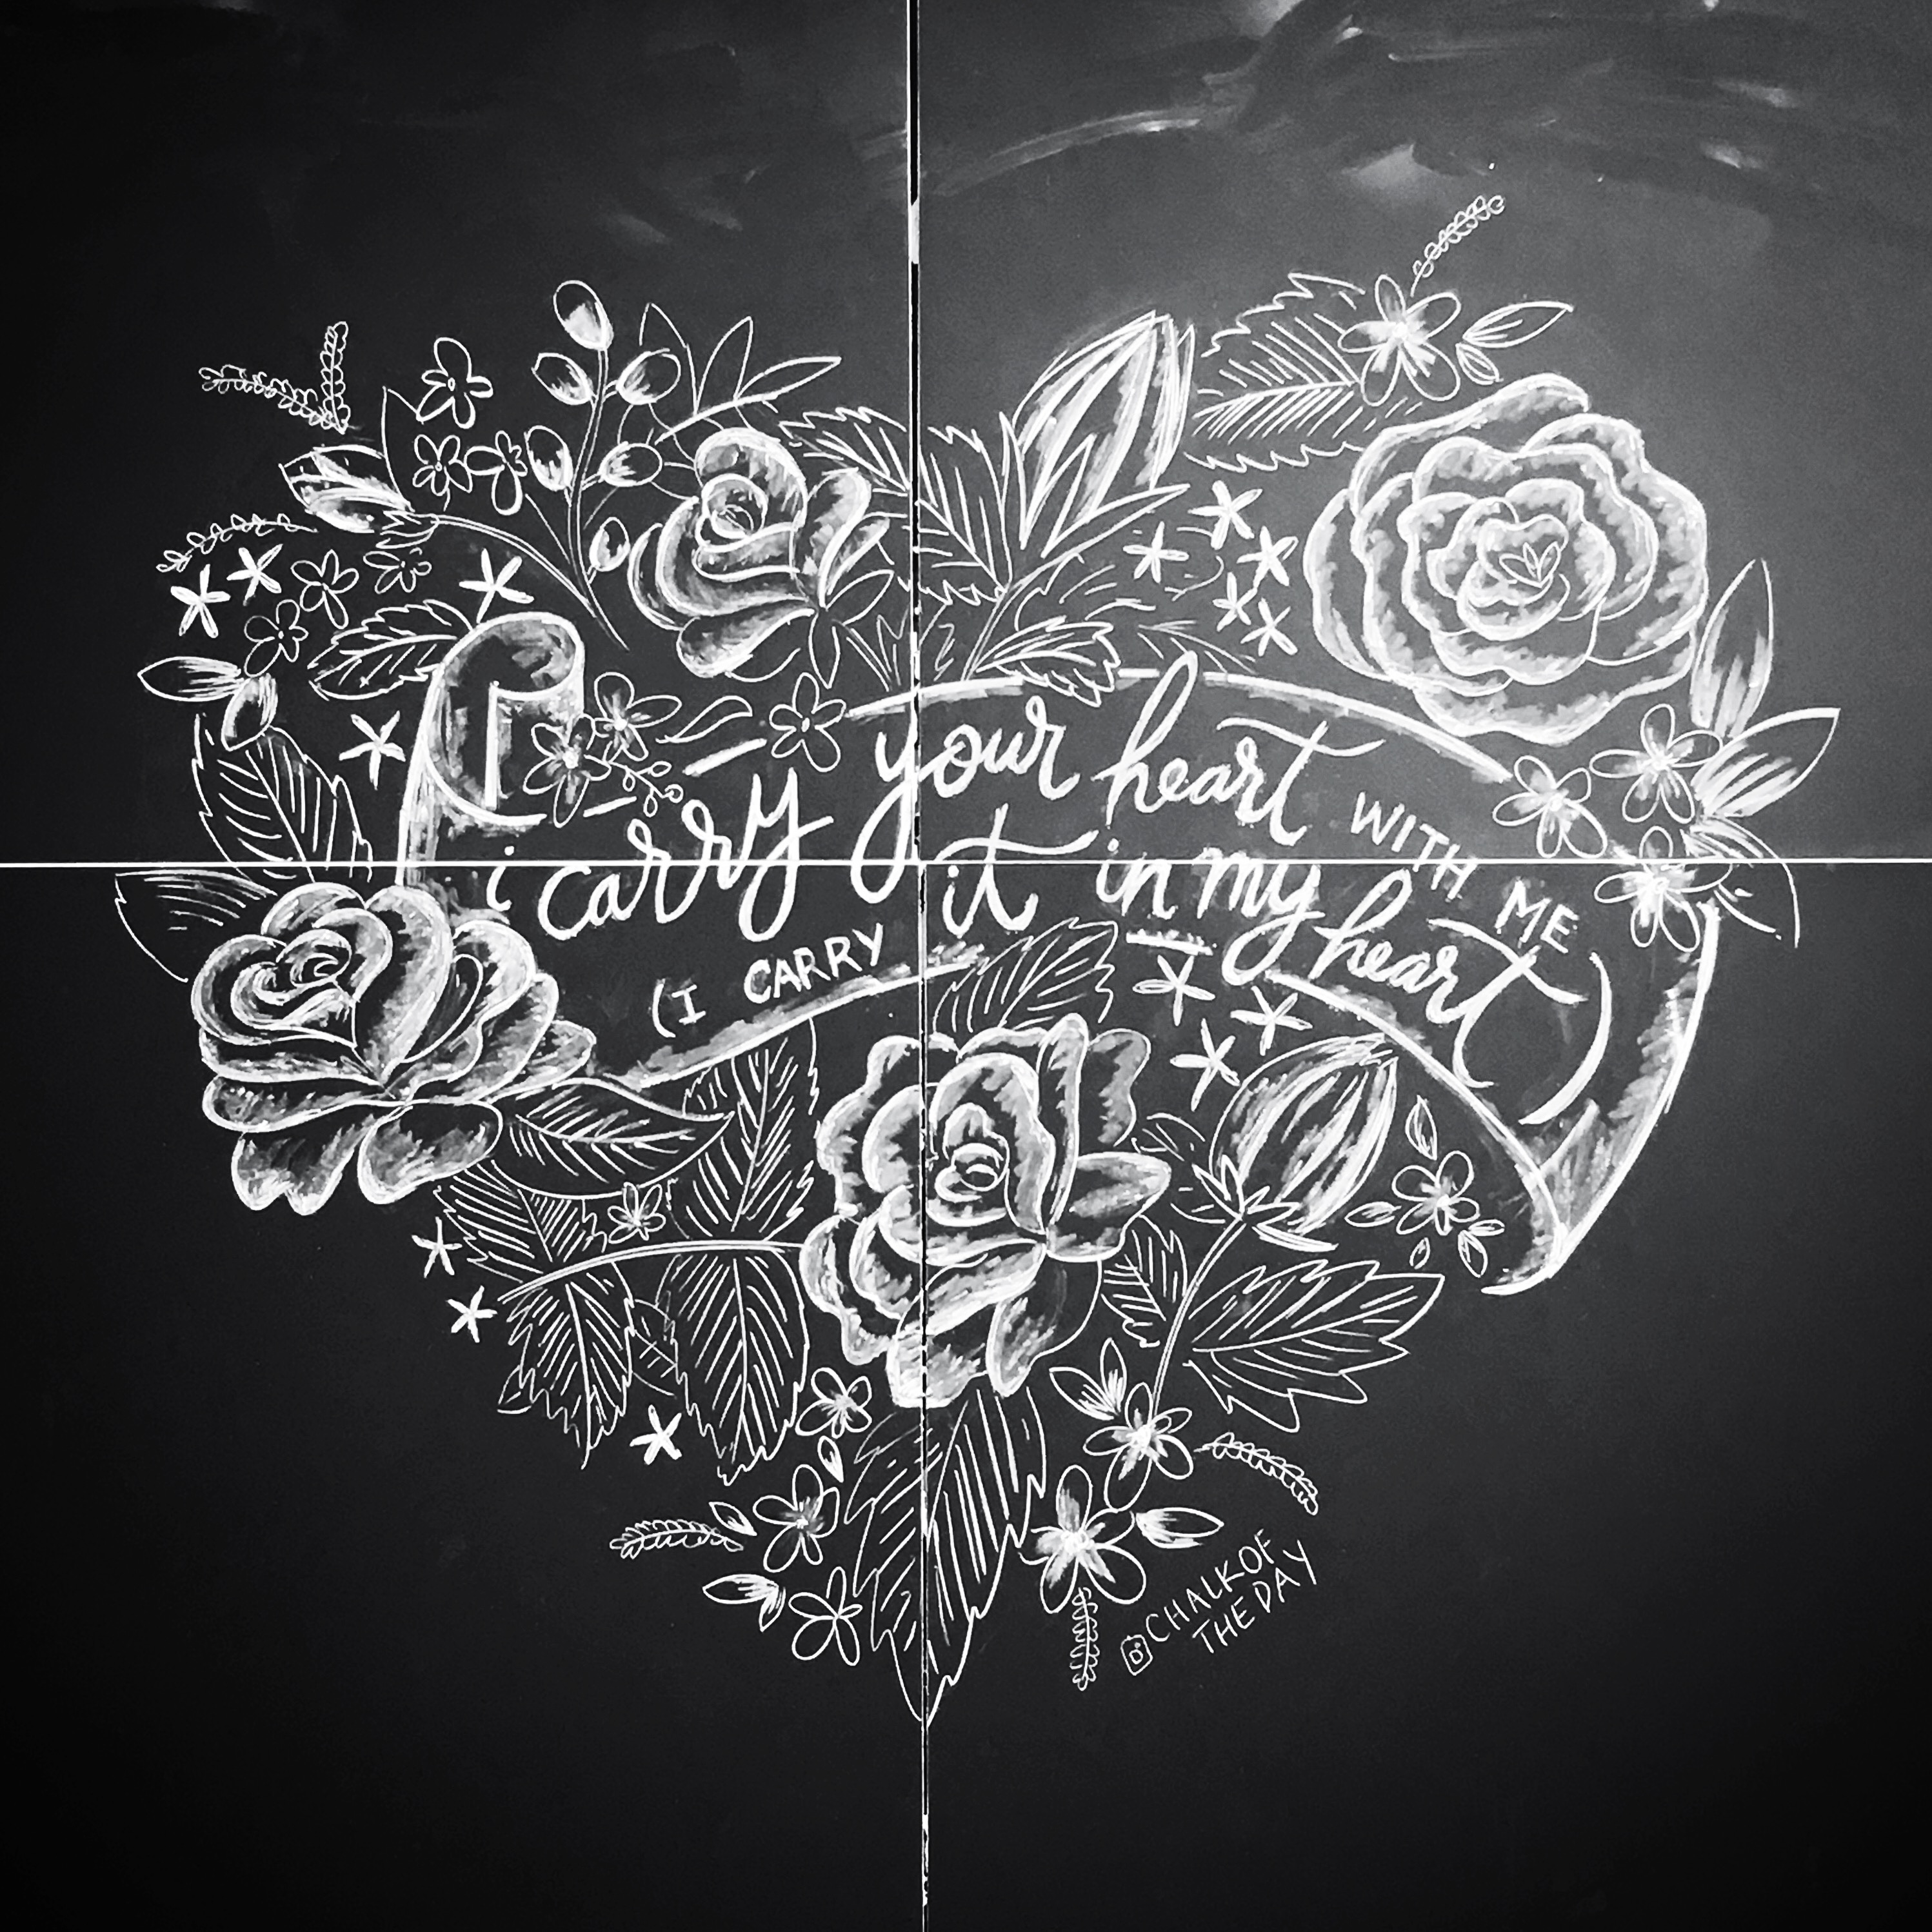 i carry your heart WITH ME
(I CARRY it in my heart)
@CHALKOF
THE DAY